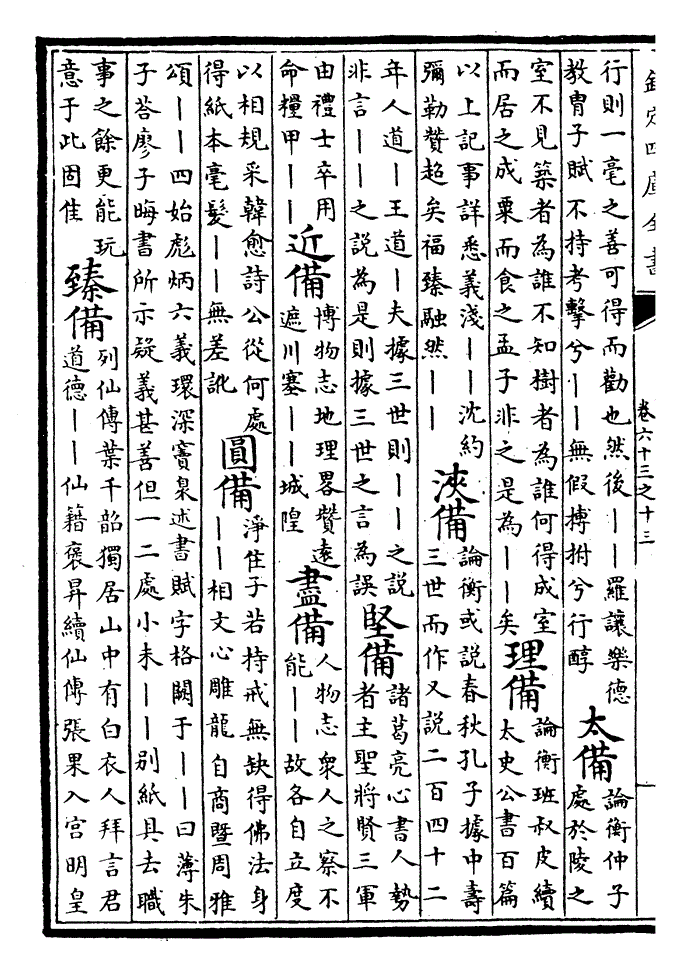 欽定四庫全書
卷六十三之十三
行則一毫之善可得而勸也然後丨丨羅讓樂德
教冑子賦不持考擊兮丨丨無假搏拊兮行醇
太備
論衡仲子
處於陵之
室不見築者為誰不知樹者為誰何得成室
而居之成粟而食之孟子非之是為丨丨矣
理備
論衡班叔皮續
太史公書百篇
以上記事詳悉義淺丨丨沈約
彌勒贊超矣福臻融然丨丨
浹備
論衡或說春秋孔子據中壽
三世而作又說二百四十二
年人道丨王道丨夫據三世則丨丨之說
非言丨丨之說為是則據三世之言為誤
堅備
諸葛亮心書人勢
者主聖將賢三軍
由禮士卒用
命糧甲丨丨
近備
博物志地理畧贊遠
遮川塞丨丨城隍
盡備
人物志衆人之察不
能丨丨故各自立度
以相規采韓愈詩公從何處
得紙本毫髮丨丨無差訛
圓備
淨住子若持戒無缺得佛法身
丨丨相文心雕龍自商暨周雅
頌丨丨四始彪炳六義環深竇臮述書賦字格闕于丨丨曰薄朱
子答廖子晦書所示疑義甚善但一二處小未丨丨別紙具去職
事之餘更能玩
意于此固佳
臻備
列仙傳葉千韶獨居山中有白衣人拜言君
道德丨丨仙籍褒昇續仙傳張果入宫明皇